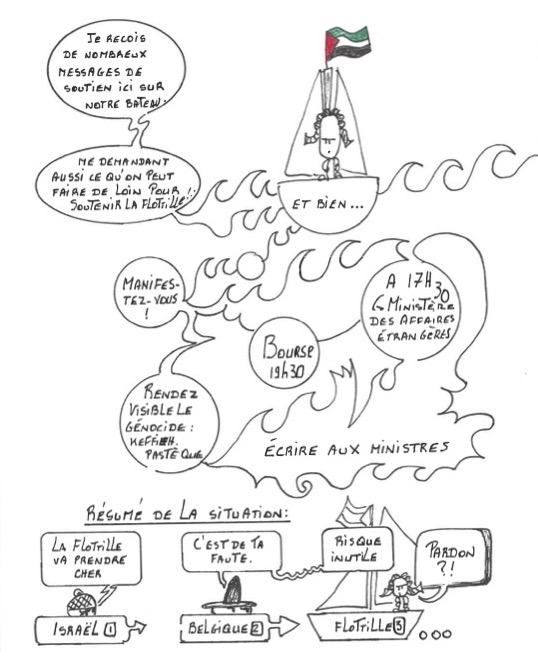 JE REÇOIS
DE NOMBREUX
MESSAGES DE
SOUTIEN ICI SUR
NOTRE BATEAU.
ME DEMANDANT
AUSSI CE QU'ON PEUT
FAIRE DE LOIN POUR
SOUTENIR LA FLOTILLE!
ET BIEN...
MANIFES-
TEZ-VOUS
!
A 17H30
MINISTÈRE
DES AFFAIRES
ÉTRANGÈRES
BOURSE
19H30
RENDEZ
VISIBLE LE
GÉNOCIDE:
KEFFIEH.
PASTÈQUE
ÉCRIRE AUX MINISTRES
RÉSUMÉ DE LA SITUATION:
LA FLOTILLE
VA PRENDRE
CHER
ISRAËL 1
C'EST DE TA
FAUTE.
BELGIQUE 2
RISQUE
INUTILE
PARDON
?!
FLOTILLE 3